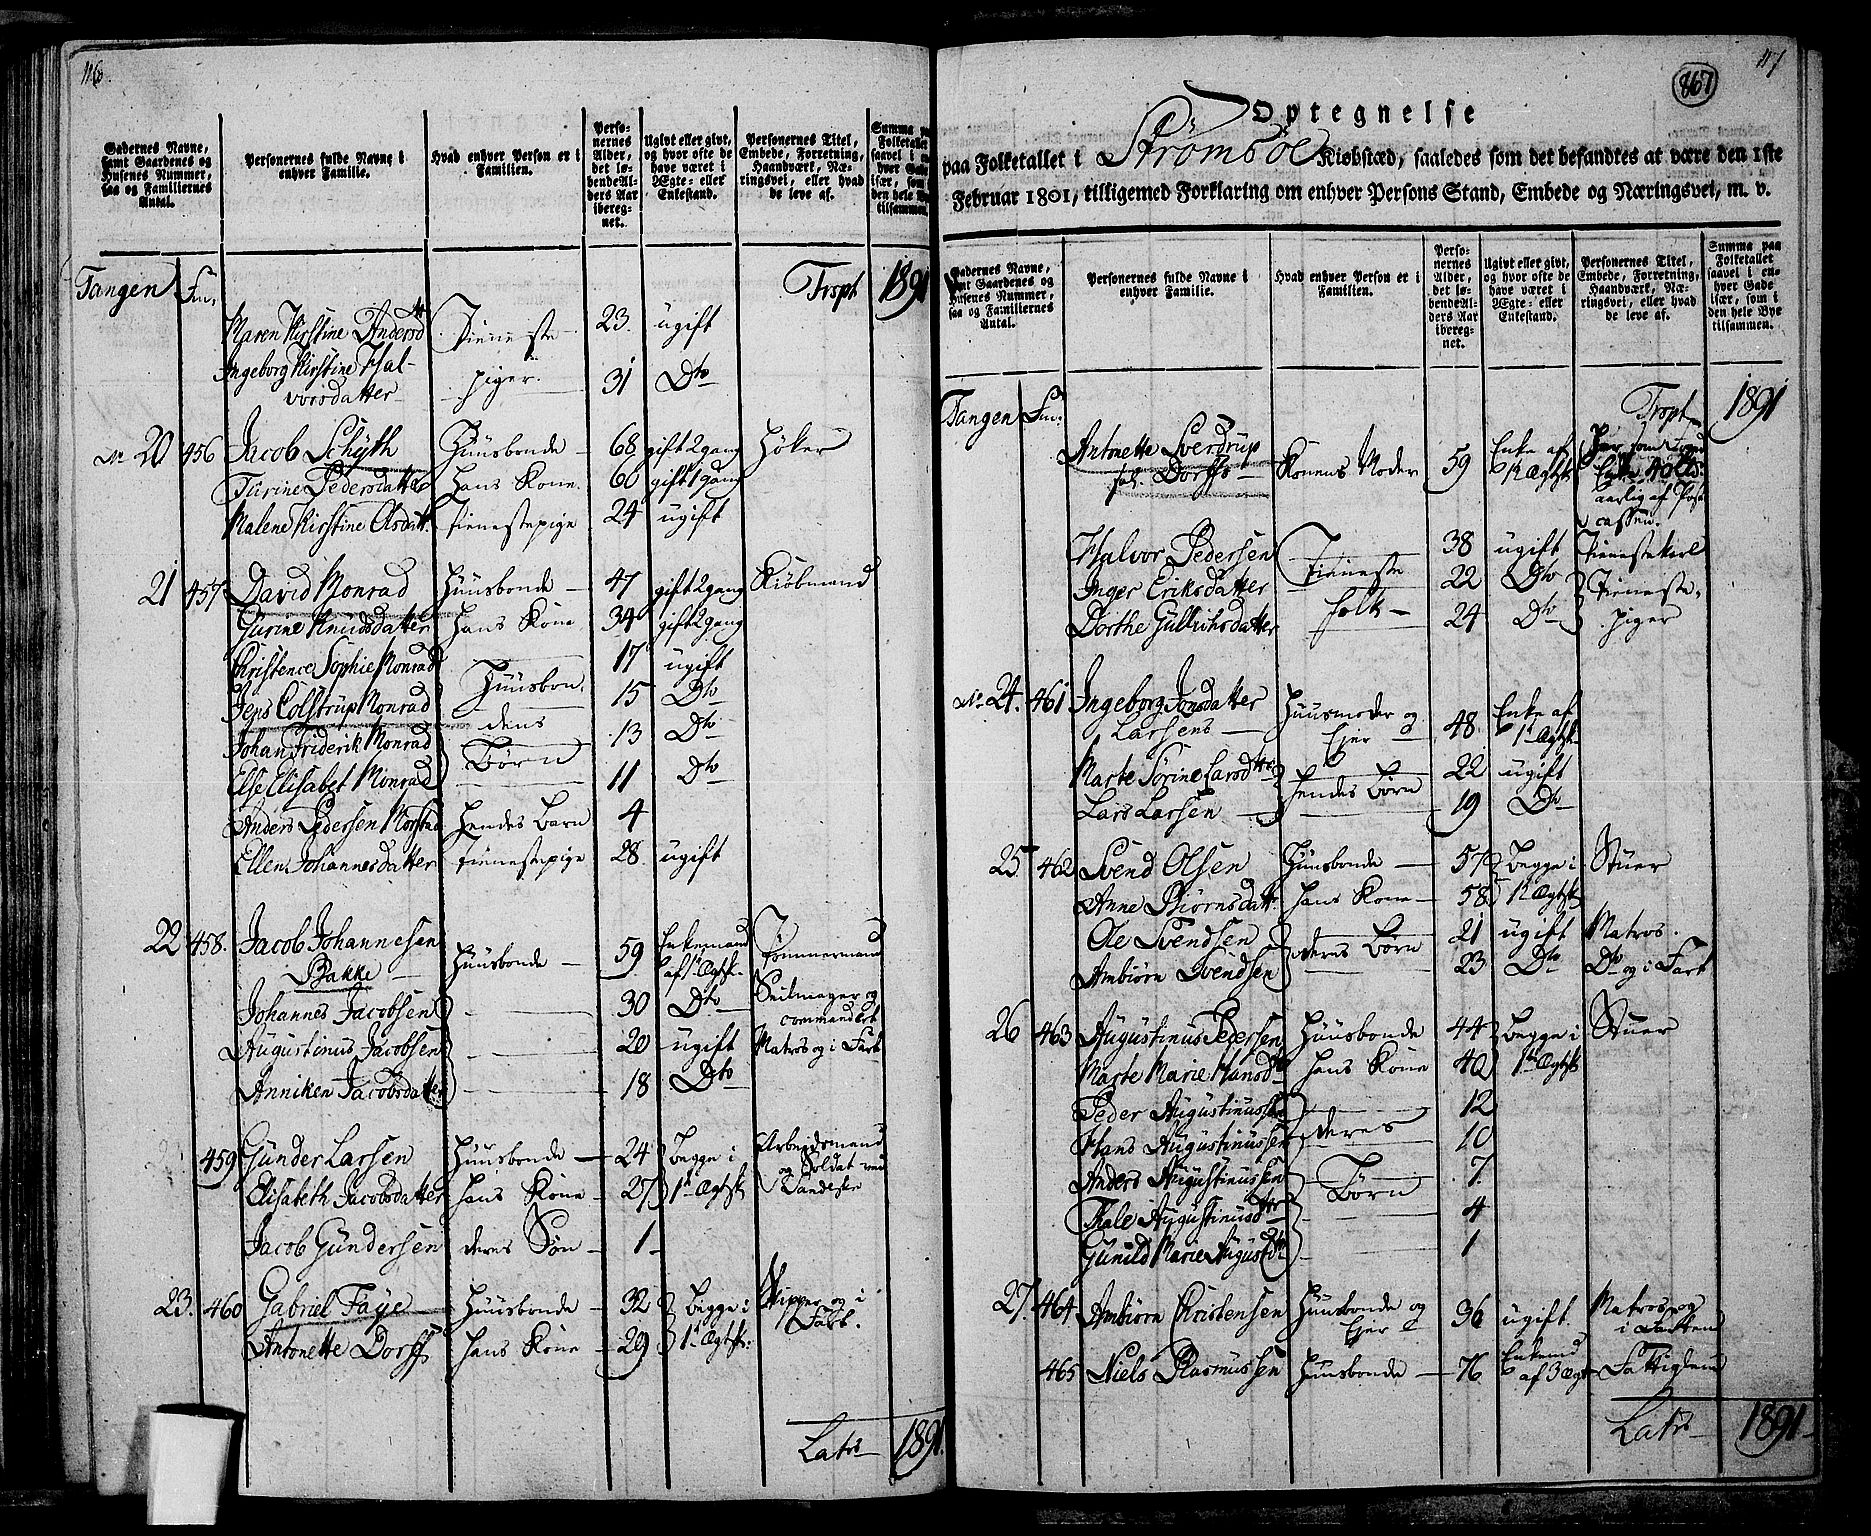 116.
Gadernes Navne, samt Gaardenes og Husenes Nummer, saa og Familiernes Antal.
Personernes fulde Navne i enhver Familie.
Hvad enhver Person er i Familien.
Personernes Alder, det løbendeAlders Aar iberegnet.
Ugivt eller givt, og hvor ofte de have været i Ægte- eller Enkestand.
Personernes Titel, Embede, Forretning, Haandværk, Næringsvei, eller hvad de leve af.
Summa paa Folketallet saavel i enhver Gade især, som i den hele Bye tilsammen.
Tangen Trspt 1891
Maren Kirstine Andersd Tieneste 23. ugift
Ingeborg Kirstine Hal-
vorsdatter piger. 31 Dto
No 20 456 Jacob Schyth Huusbonde 68 gift 2 gang Høker
Turine Pedersdatter hans Kone 60 gift 1 gang
Malene Kirstine Olsdatt. tienestepige 24 ugift
21 457 David Monrad Huusbonde 47 gift 2 gang Kiøbmand
Gurine Knudsdatter hans Kone 34 gift 2 gang
Christence Sophie Monrad 17 ugift
Jeps Colstrup Monrad Huusbon- 15 Dto
dens
Johan Friderik Monrad 13 Dto
Else Elisabet Monrad Børn 11 Dto
Anders Pedersen Morstad hendes Barn 4
Ellen Johannesdatter tienestepige 28 ugift
22 458. Jacob Johannesen
Bakke Huusbonde 59 Enkemand
af 1 Ægtsk. Tømmermand
Johannes Jacobsen 30 Dto Seilmager og
Augustinus Jacobsen 20 ugift Matros og i Fart
Anniken Jacobsdatter 18 Dto
459 Gunder Larsen Huusbonde 24 begge i Arbeidsmand
og Soldat ved
Elisabeth Jacobsdatter hans Kone 27 1te Ægtsk
Jacob Gundersen deres Søn 1
23. 460 Gabriel Faye Huusbonde 32 begge i Skipper og i
Fart.
Antonette Dorff hans Kone 29 1te Ægtsk:
Lats 1891.
117
867
Optegnelse
paa Folketallet i Strømsöe Kiøbstæd, saaledes som det befandtes at være den 1ste
Februar 1801, tilligemed Forklaring om enhver Persons Stand, Embede og Næringsvei, m. v.
Gadernes Navne, samt Gaardenes og Husenes Nummer, saa og Familiernes Antal.
Personernes fulde Navne i enhver Familie.
Hvad enhver Person er i Familien.
Personernes Alder, det løbendeAlders Aar iberegnet.
Ugivt eller givt, og hvor ofte de have været i Ægte- eller Enkestand.
Personernes Titel, Embede, Forretning, Haandværk, Næringsvei, eller hvad de leve af.
Summa paa Folketallet saavel i enhver Gade især, som i den hele Bye tilsammen.
Tangen Trspt 1891
Antonette Sverdrup
fød. Dorffs Konens Moder 59 Enke af
1 Ægtsk
aarlig af Post
cassen.
Halvor Pedersen Tieneste 38 ugift Tienestekarl
Inger Eriksdatter folk 22 Dto Tieneste-
Dorthe Gullichsdatter 24 Dto piger
No 24. 461 Ingeborg Jonsdatter
Larsens Huusmoder og
Ejer 48 Enke af
1te Ægtsk
Marte Sørine Larsdtter hendes Børn 22 ugift
Lars Larsen 19 Dto
25 462 Svend Olsen Huusbonde 57 begge i Stuer
Anne Biørnsdatt. hans Kone 58 1 Ægtsk
Ole Svendsen deres Børn 21 ugift Matros.
Ambiørn Svendsen 23 Dto Dto og i Fart
26 463 Augustinus Pedersen Huusbonde 44 begge i Stuer
Marte Marie Hansd hans Kone 40 1te Ægtsk
Peder Augustinussen 12
Hans Augustinussen deres 10
Anders Augustinussen 7.
Kale Augustinusdtr Børn 4
Gunild Marie Augustdtr 1
27. 464 Ambiørn Christensen Huusbonde og
Ejer 36 ugift. Matros og
i Farten
465 Niels Rasmussen Huusbonde 76 Enkemd
af 3 ægt Fattiglem
Lats 1891